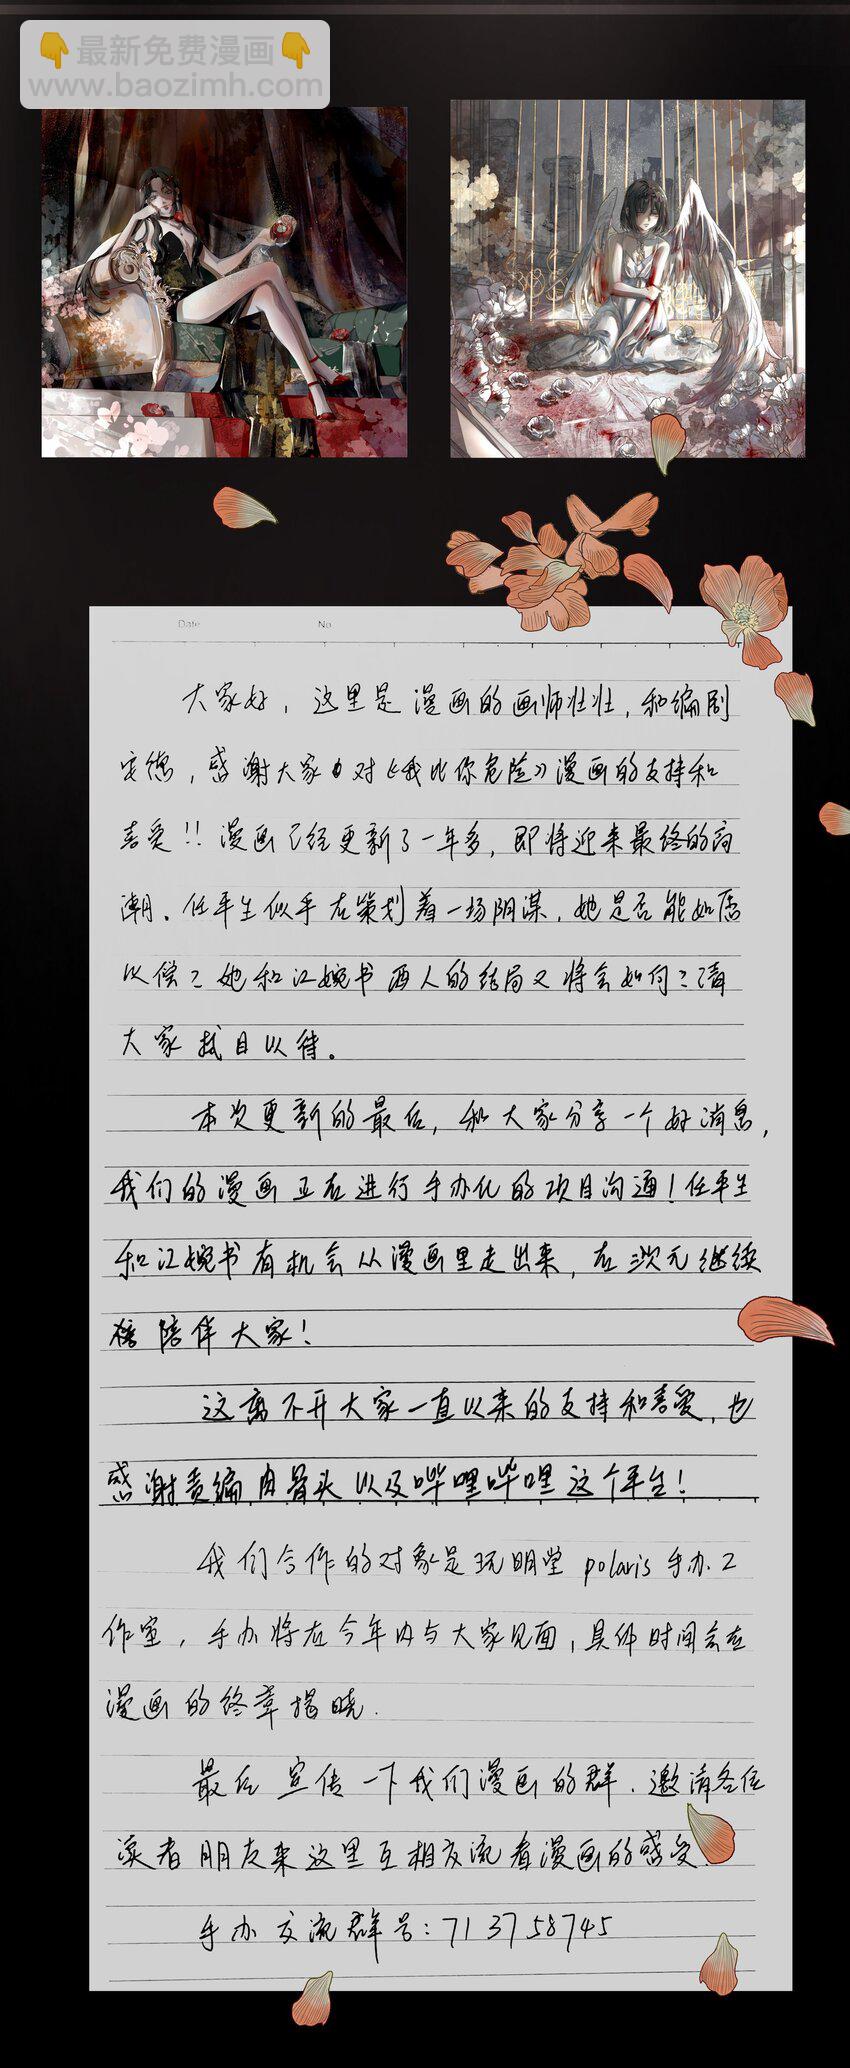 👇最新免费漫画👇
www.baozimh.com
Date
No
大家好，这里是漫画的画师壮壮，和编剧
安德，感谢大家对《我比你危险》漫画的支持和
喜爱!! 漫画已经更新了一年多，即将迎来最终的高
潮。任平生似乎在策划着一场阴谋，她是否能如愿
以偿？她和江婉书两人的结局又将会如何？请
大家拭目以待。
本次更新的最后，和大家分享一个好消息，
我们的漫画正在进行手办化的项目沟通！任平生
和江婉书有机会从漫画里走出来，在三次元继续
陪伴大家！
这离不开大家一直以来的支持和喜爱，也
感谢责编肉骨头以及哔哩哔哩这个平台！
我们合作的对象是玩明堂 polaris 手办工
作室，手办将在今年内与大家见面，具体时间会在
漫画的终章揭晓.
最后 宣传一下我们漫画的群. 邀请各位
读者朋友来这里互相交流看漫画的感受.
手办交流群号：713758745